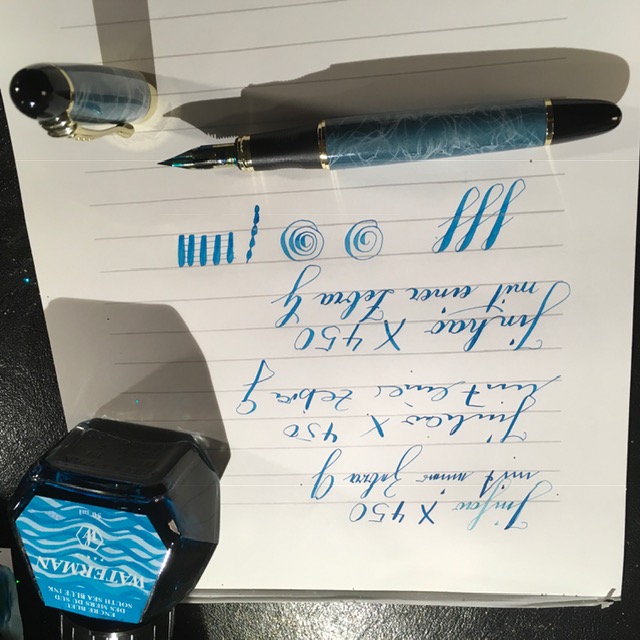 Jinhao X 450
mit einer Zebra G
Jinhao X 450
mit einer Zebra G
Jinhao X 450
mit einer Zebra G
ENCRE BLEU
DES MERS DU SUD
SOUTH SEA BLUE INK
WATERMAN
PARIS
50 ml